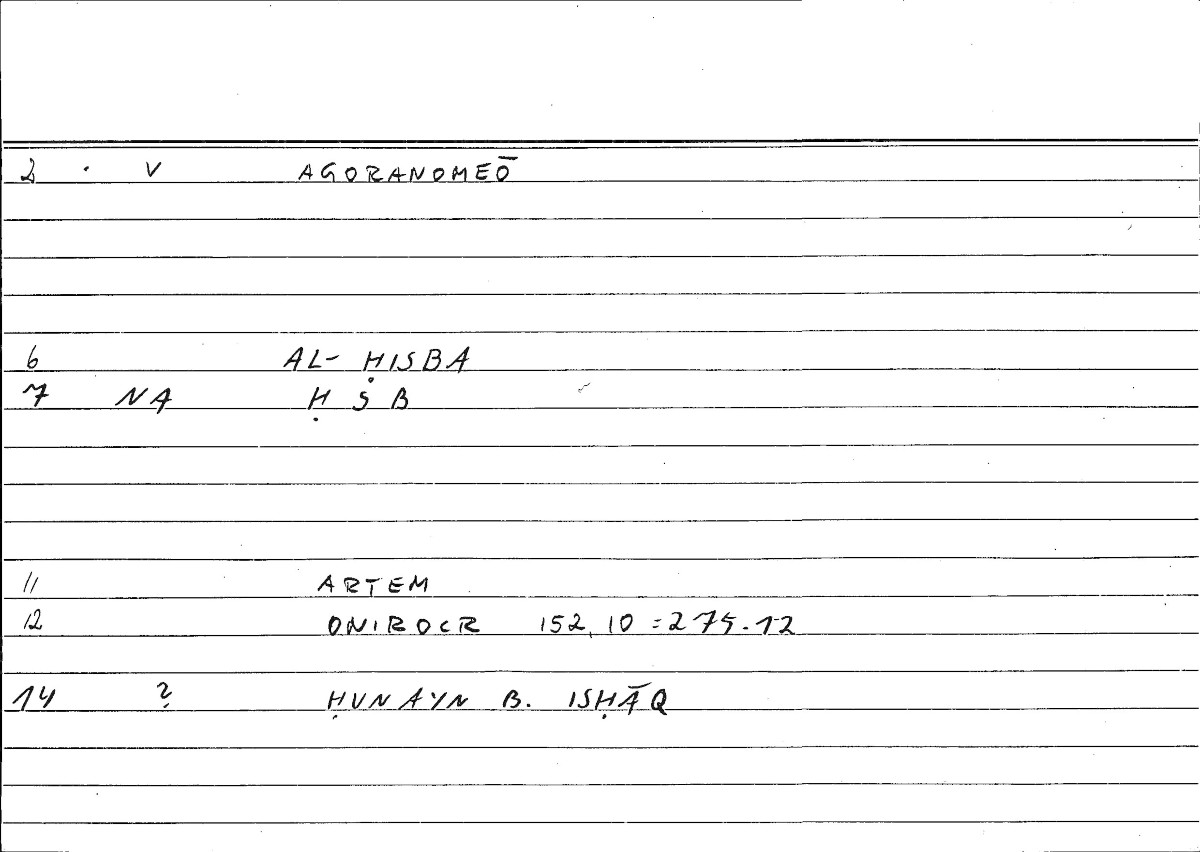 2 . V AGORANOMEŌ
6 AL- ḤISBA
7 NA Ḥ S B
11 ARTEM
12 ONIROCR 152,10 = 275.12
14 ? ḤUNAYN B. ISḤĀQ